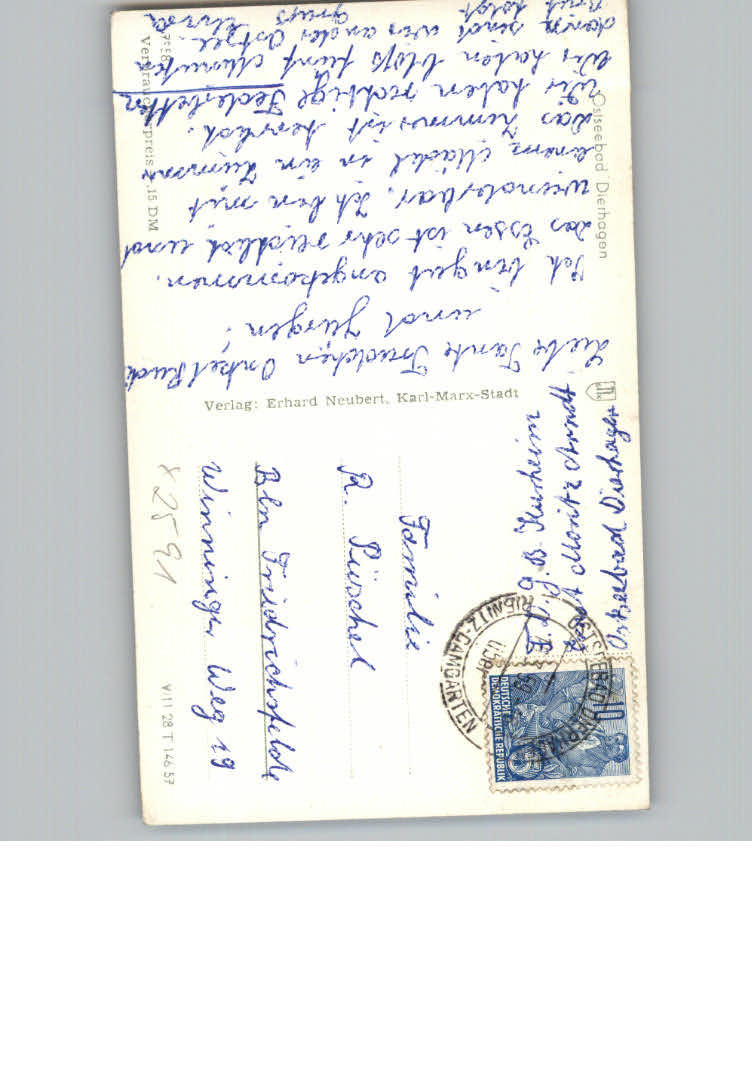 Ostseebad Dierhagen
Liebe Tante Trudchen Onkel Rudi
und Jürgen!
Ich bin gut angekommen.
das Essen ist sehr reichlich und
wunderbar. Ich bin mit
einem Mädel in ein Zimmer
Das Zimmer ist herrlich.
Wir haben richtige Federbetten
Wir haben bloß fünf Minuten
dann sind wir an der Ostsee.
Gruß
Verbraucherpreis ,15 DM
Verlag: Erhard Neubert, Karl-Marx-Stadt
Moritz Arndt
Ostseebad Dierhagen
DEUTSCHE
DEMOKRATISCHE REPUBLIK
10
OSTSEEBAD DIERHAGEN
RIBNITZ-DAMGARTEN
Familie
R. Püschel
Bln Friedrichsfelde
Winninger Weg 19
x 2591
V 11 28 T 146 57